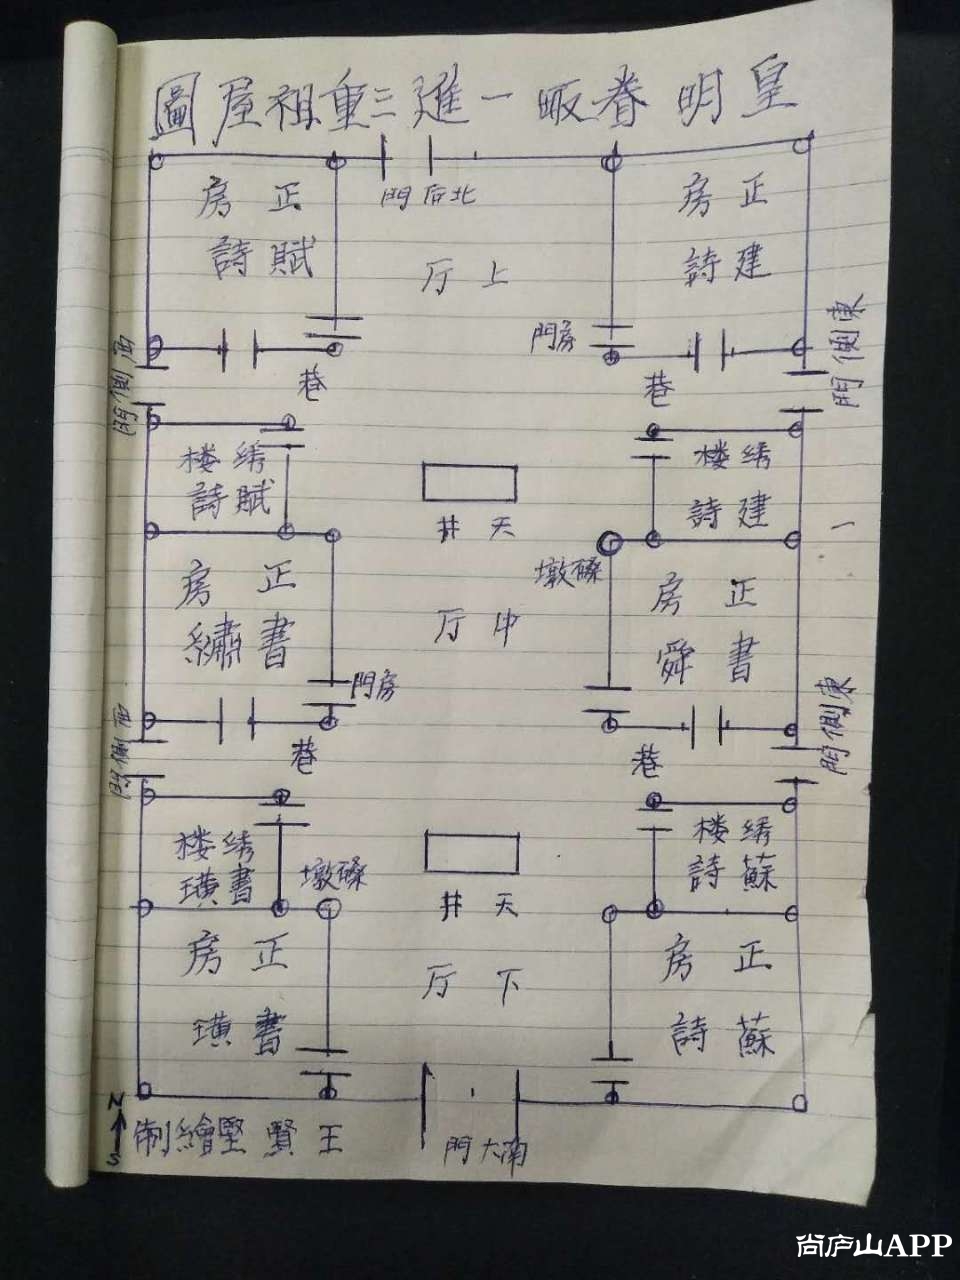 皇明眷畈一進三重祖屋圖
正房
建詩
北后門
正房
賦詩
上厅
房門
東側門
西側門
巷
巷
绣楼
建詩
绣楼
賦詩
天井
磉墩
正房
書舜
中厅
正房
書繡
房門
東側門
西側門
巷
巷
绣楼
蘇詩
绣楼
書璜
磉墩
天井
正房
蘇詩
下厅
正房
書璜
南大門
王賢堅繪制
N
S
尚庐山APP